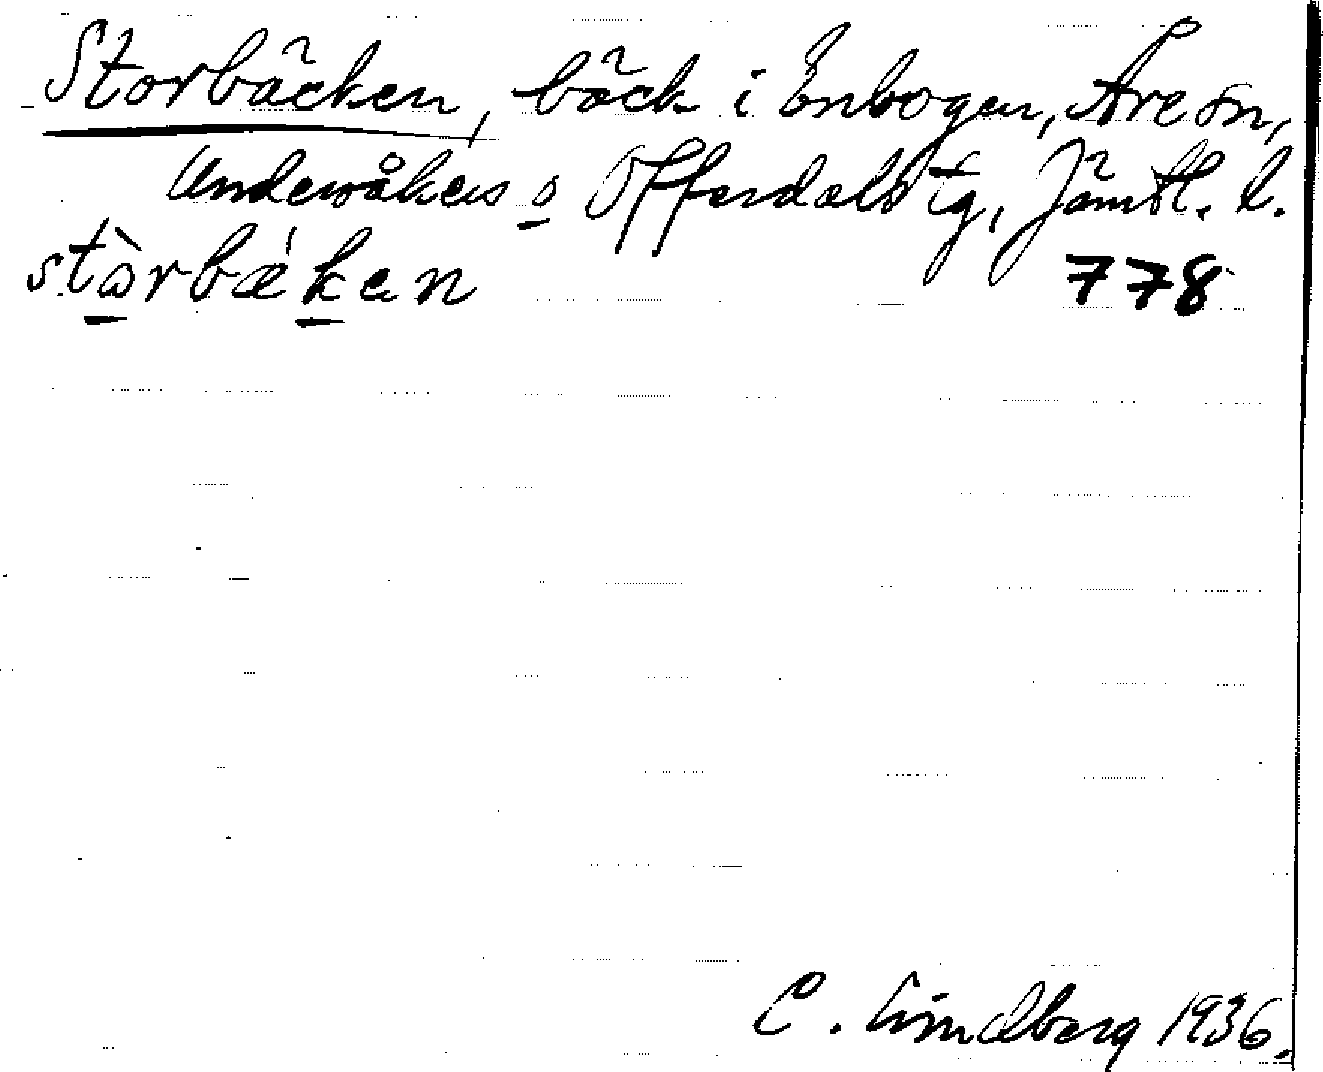 Storbäcken, bäck i Enbogen, Åre sn,
Undersåkers o Offerdals tg, Jämtl. l.
stòrbǽken 778
C. Lindberg 1936.